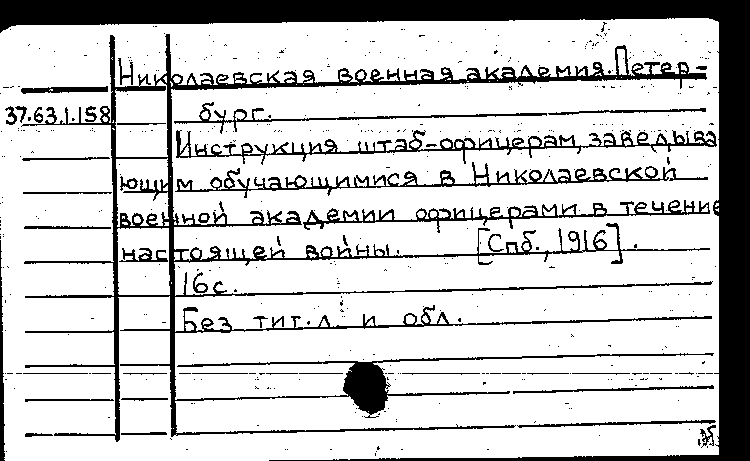 Николаевская военная академия. Петер-
37.63.1.158 бург.
Инструкция штаб-офицерам, заведыва
ющим обучающимися в Николаевской
военной академии офицерами в течение
настоящей войны. [Спб., 1916].
16с.
Без тит. л. и обл.